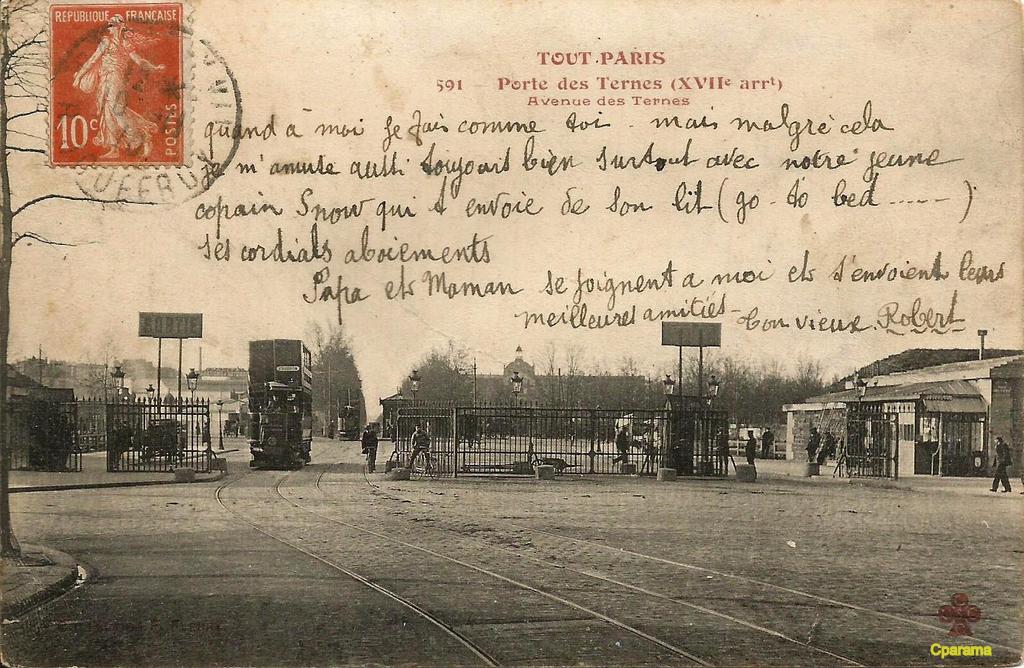 REPUBLIQUE FRANÇAISE
10c
POSTES
TOUT PARIS
591 Porte des Ternes (XVIIe arrt)
Avenue des Ternes
quand à moi je fais comme toi - mais malgrè cela
je m'amuse aussi toujours bien surtout avec notre jeune
copain Snow qui t'envoie de son lit (go to bed .....)
ses cordials aboiements
Papa et Maman se joignent a moi et t'envoient leurs
meilleures amitiés - ton vieux Robert
SORTIE
Cparama